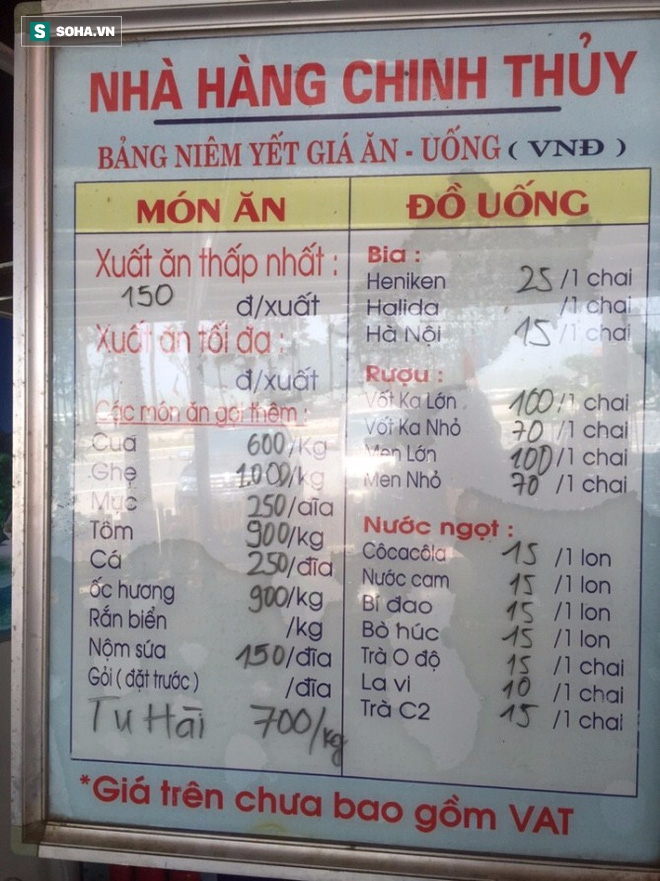 S SOHA.VN
NHÀ HÀNG CHINH THỦY
BẢNG NIÊM YẾT GIÁ ĂN - UỐNG ( VNĐ )
MÓN ĂN
Xuất ăn thấp nhất :
150 đ/xuất
Xuất ăn tối đa :
đ/xuất
Các món ăn gọi thêm :
Cua 600/Kg
Ghẹ 1.000/kg
Mực 250/đĩa
Tôm 900/kg
Cá 250/đĩa
ốc hương 900/kg
Rắn biển /kg
Nộm sứa 150/đĩa
Gỏi ( đặt trước ) /đĩa
Tu Hài 700/kg
ĐỒ UỐNG
Bia :
Heniken 25/1 chai
Halida /1 chai
Hà Nội 15/1 chai
Rượu :
Vốt Ka Lớn 100/1 chai
Vốt Ka Nhỏ 70/1 chai
Men Lớn 100/1 chai
Men Nhỏ 70/1 chai
Nước ngọt :
Côcacôla 15/1 lon
Nước cam 15/1 lon
Bí đao 15/1 lon
Bò húc 15/1 lon
Trà O độ 15/1 chai
La vi 10/1 chai
Trà C2 15/1 chai
*Giá trên chưa bao gồm VAT